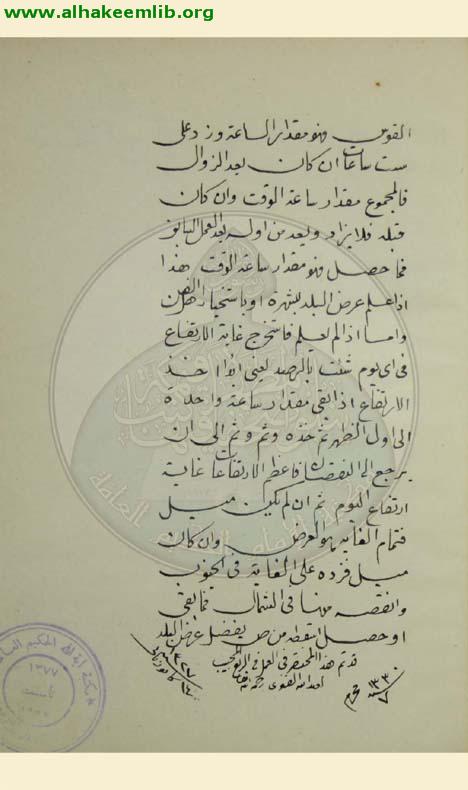 www.alhakeemlib.org
القوس فهو مقدار الساعة وزد على
ست ساعات ان كان بعد الزوال
فالمجموع مقدار ساعة الوقت وان كان
قبله فلا يزاد ويعد من اوله بعد العمل السابق
فما حصل فهو مقدار ساعة الوقت هذا
اذا علم عرض البلد بالشهرة او باستخبار اهل الفن
وامسا اذا لم يعلم فاستخرج غاية الارتفاع
في اي يوم شئت بالرصد يعني اذا اخذ
الارتفاع اذا بقي مقدار ساعة واحدة
الى اول الظهر ثم خذه وثم وثم الى ان
يرجع الى النقصان فاعظم الارتفاعات غاية
ارتفاع اليوم ثم ان لم يكن ميل
فتمام الغاية هو العرض وان كان
ميل فزده على الغاية في الجنوب
وانقصه منها في الشمال فما بقي
او حصل اسقطه من ص يفضل عرض البلد
قد تم هذا المختصر في العمل في الربع المجيب
١٣٣٠
محرم
١٣٧٧